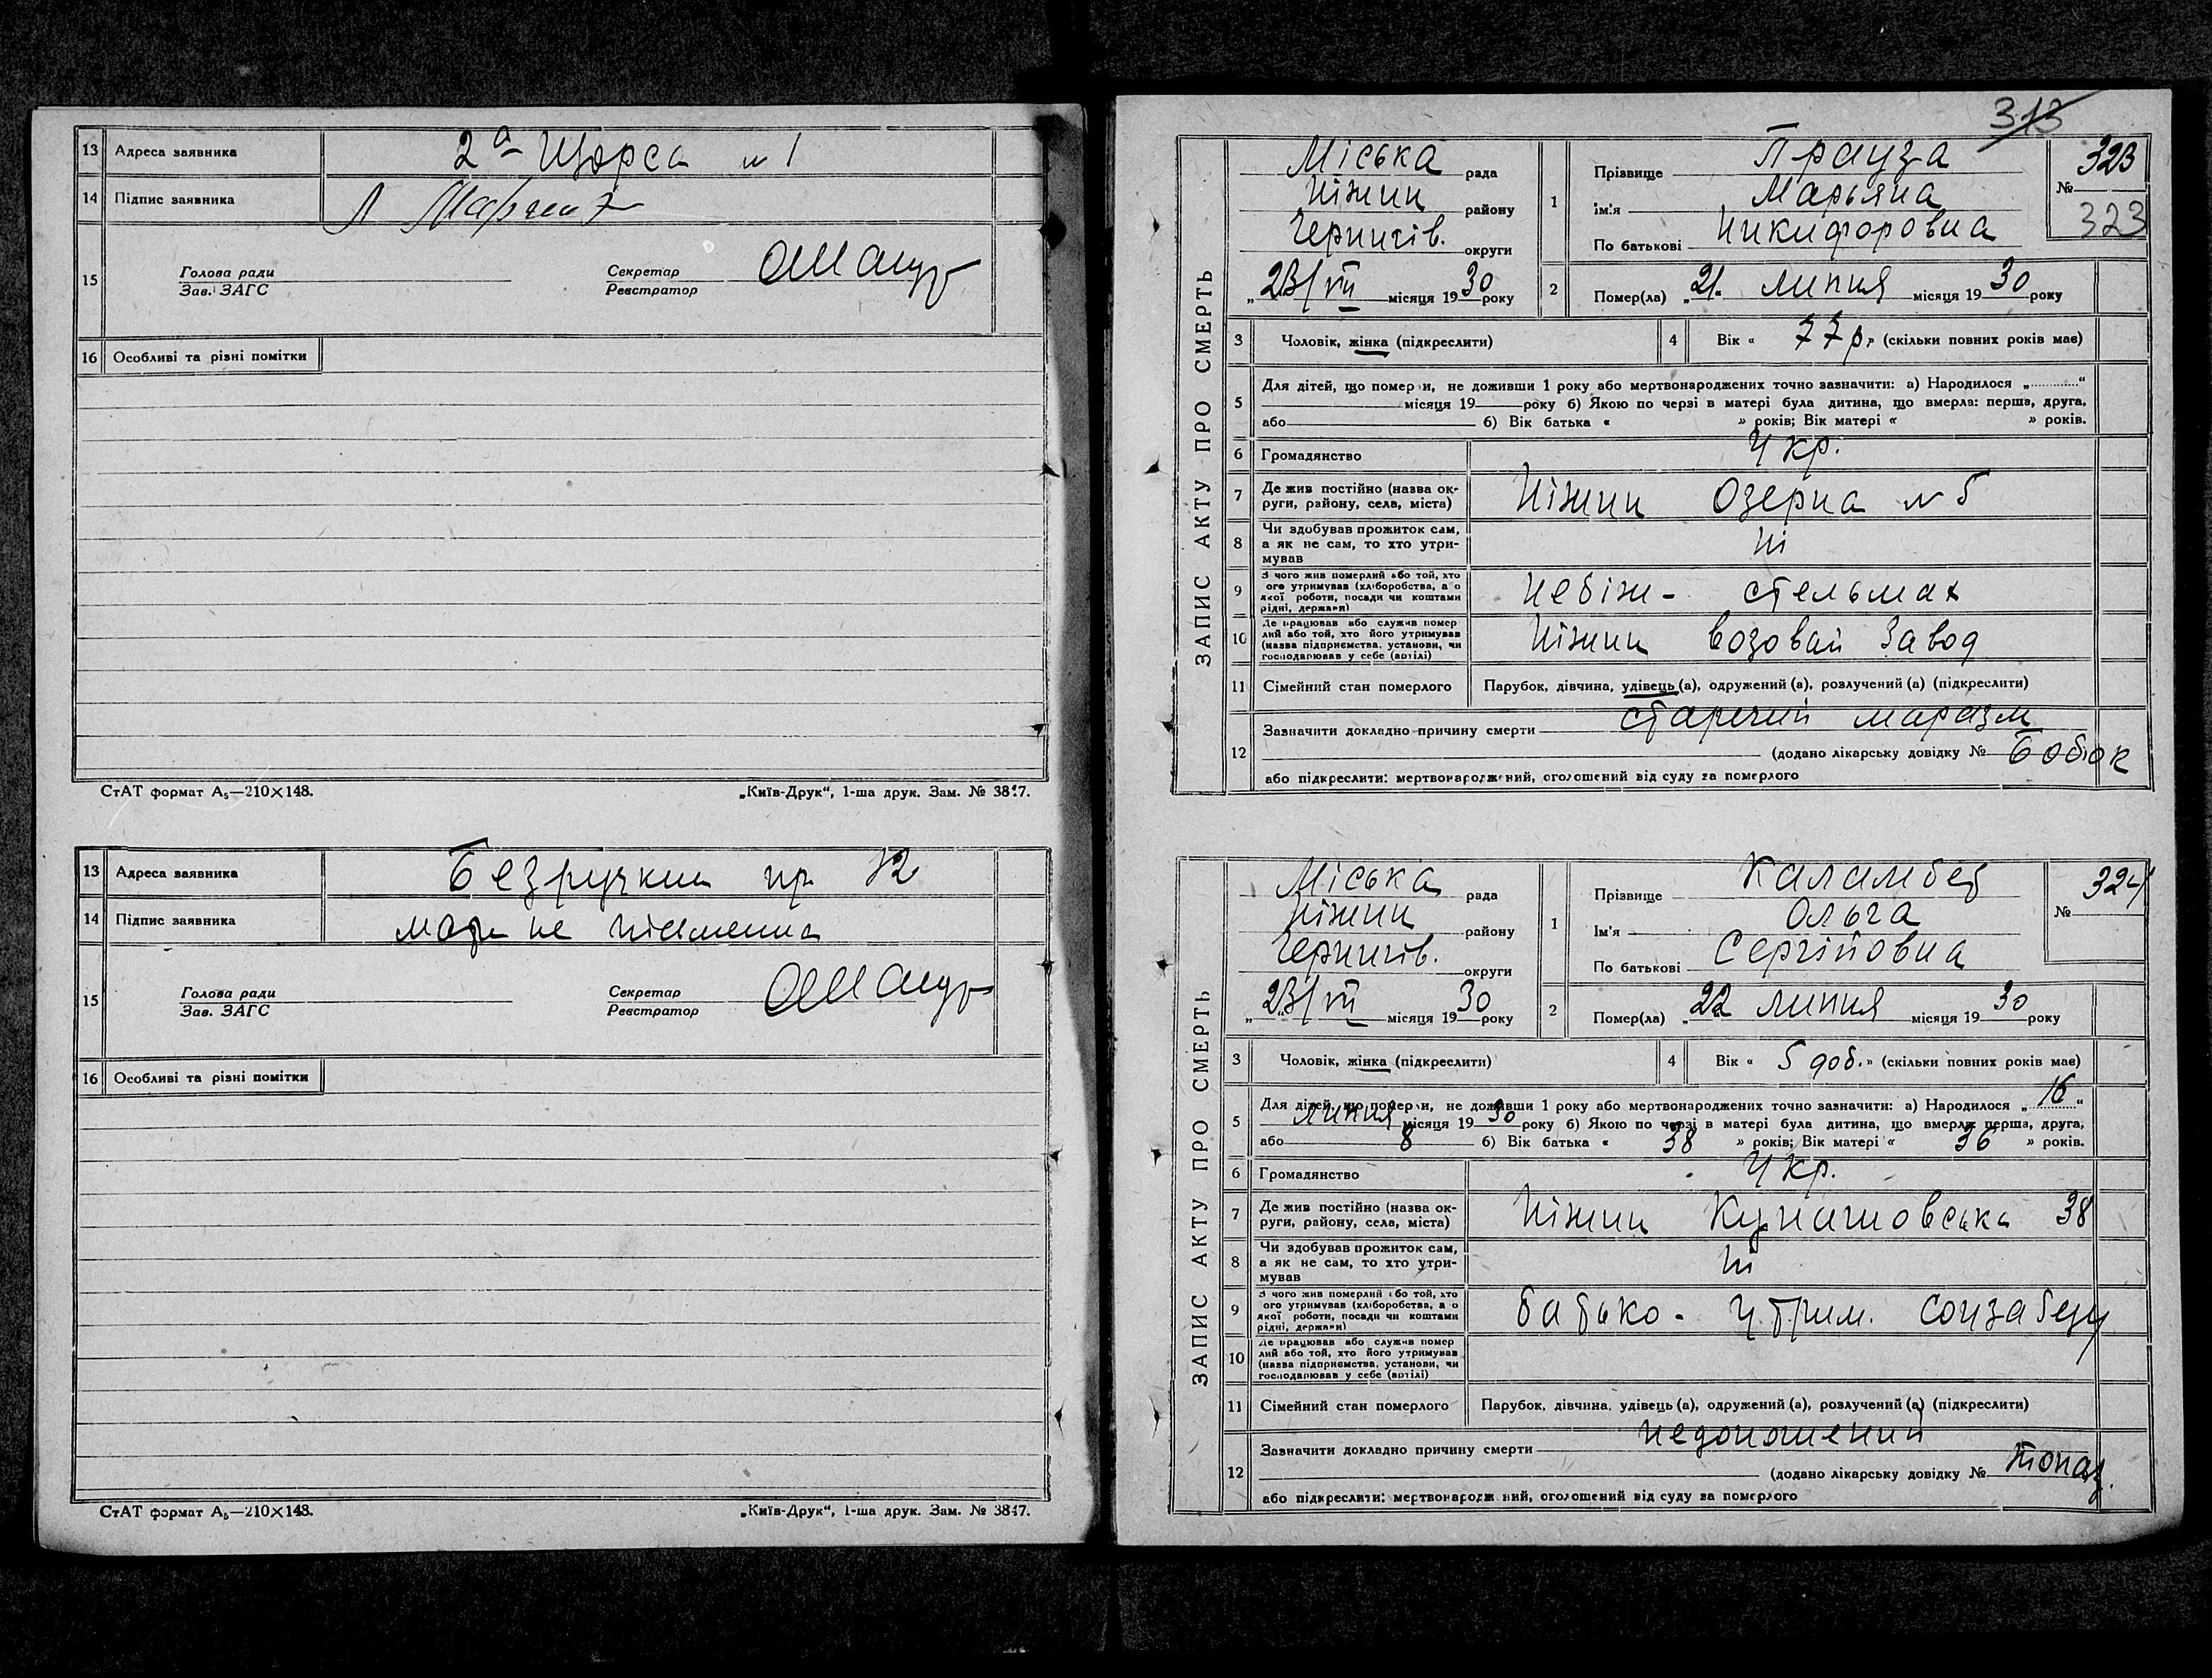 13 Адреса заявника 2а Щорса № 1
14 Підпис заявника
15 Голова ради
Зав. ЗАГС
Секретар
Реєстратор
16 Особливі та різні помітки
СтАТ формат А5—210×148. „Київ-Друк“, 1-ша друк. Зам. № 3817.
13 Адреса заявника 12
14 Підпис заявника мати не письменна
15 Голова ради
Зав. ЗАГС
Секретар
Реєстратор
16 Особливі та різні помітки
СтАТ формат А5—210×148. „Київ-Друк“, 1-ша друк. Зам. № 3817.
313
ЗАПИС АКТУ ПРО СМЕРТЬ
Міська рада
Ніжин району
Чернигів. округи
„23/VII місяця 1930 року
1 Прізвище Прауза
Ім'я Марьяна
По батькові Никифоровна
№ 323
323
2 Помер(ла) „21“ липня місяця 1930 року
3 Чоловік, жінка (підкреслити)
4 Вік « 77 р. » (скільки повних років має)
5 Для дітей, що померли, не доживши 1 року або мертвонароджених точно зазначити: а) Народилося „ “
місяця 19 року б) Якою по черзі в матері була дитина, що вмерла: перша, друга,
або б) Вік батька « » років; Вік матері « » років.
6 Громадянство Укр.
7 Де жив постійно (назва ок-
руги, району, села, міста) Ніжин Озерна № 5
8 Чи здобував прожиток сам,
а як не сам, то хто утри-
мував ні
9 З чого жив померлий або той, хто
ого утримував (хліборобства, а о
якої роботи, посади чи коштами
рідні, держави) небіж - стельмах
10 Де працював або служив помер
лий або той, хто його утримував
(назва підприємства, установи, чи
господарював у себе (артілі) Ніжин возовай завод
11 Сімейний стан померлого Парубок, дівчина, удівець (а), одружений (а), розлучений (а) (підкреслити)
12 Зазначити докладно причину смерти старечий маразм
(додано лікарську довідку № Бобюк
або підкреслити: мертвонароджений, оголошений від суду за померлого
ЗАПИС АКТУ ПРО СМЕРТЬ
Міська рада
Ніжин району
Чернигів. округи
„23/VII місяця 1930 року
1 Прізвище Каламбет
Ім'я Ольга
По батькові Сергійовна
№ 324
2 Помер(ла) „22 липня місяця 1930 року
3 Чоловік, жінка (підкреслити)
4 Вік « 5 доб. » (скільки повних років має)
5 Для дітей, що померли, не доживши 1 року або мертвонароджених точно зазначити: а) Народилося „16“
липня місяця 1930 року б) Якою по черзі в матері була дитина, що вмерла: перша, друга,
або 8 б) Вік батька « 38 » років; Вік матері « 36 » років.
6 Громадянство Укр.
7 Де жив постійно (назва ок-
руги, району, села, міста) Ніжин Кунашовська 38
8 Чи здобував прожиток сам,
а як не сам, то хто утри-
мував ні
9 З чого жив померлий або той, хто
ого утримував (хліборобства, а о
якої роботи, посади чи коштами
рідні, держави) батько - утрим. соцзабезу
10 Де працював або служив помер
лий або той, хто його утримував
(назва підприємства, установи, чи
господарював у себе (артілі)
11 Сімейний стан померлого Парубок, дівчина, удівець (а), одружений (а), розлучений (а) (підкреслити)
12 Зазначити докладно причину смерти недоношений
(додано лікарську довідку №
або підкреслити: мертвонароджений, оголошений від суду за померлого